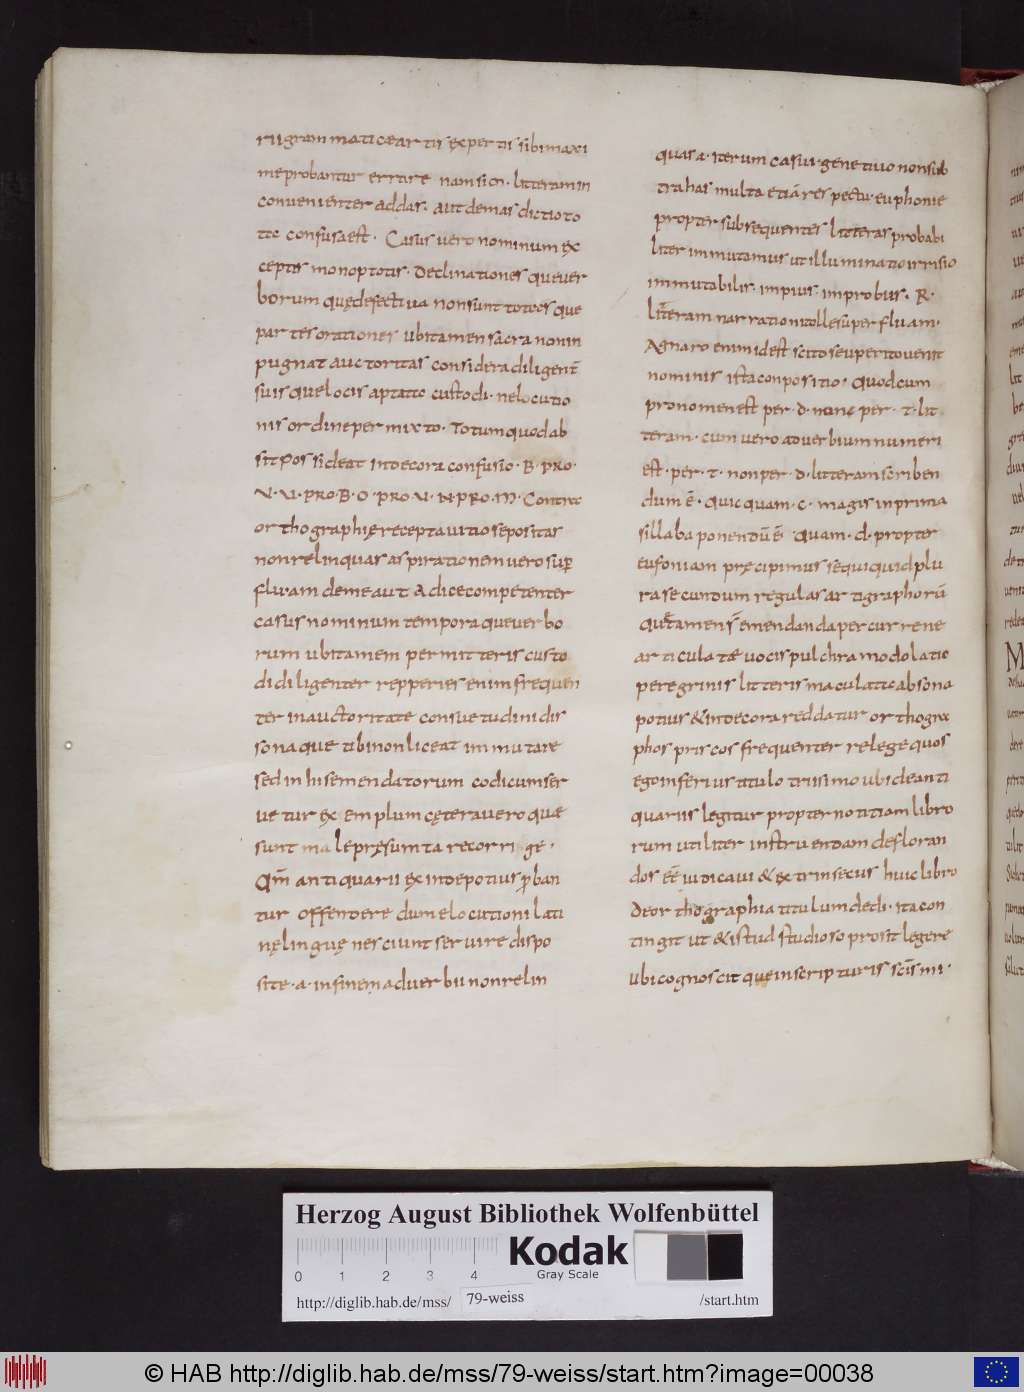 rii grammaticae artis expertis sibi maxi
me probantur errare nam si n litteram in
convenienter addas. aut demas dictio to
ta confusa est. Casus vero nominum ex
ceptis monoptotis. Declinationes que ver
borum quę defectiva non sunt totas que
partes orationes ubi tamen sacra non in
pugnat auctoritas considera diligent̄
suis que locis aptatas custodi. ne locutio
nis ordine permixto. Totum quod ab
sit
sideat indecora confusio. B. PRO.
V. V. PRO. B. O. PRO. V. N. PRO. M. Contra
orthographię recepta vitiose positas
non relinquas aspirationem vero sup̄
fluam deme aut adice competenter
casus nominum tempora que verbo
rum ubi tamen permitteris custo
di diligenter repperies enim frequen
ter in auctoritate consuetudini dis
sona que tibi non liceat immutare
sed in his emendatorum codicum ser
vetur exemplum cętera vero quae
sunt male pręsumta recorrige.
Qm̄ antiquarii ex inde potius p̄ban
tur offendere dum elocutioni lati
nę linguę nesciunt servire dispo
site. a. in finem adverbii non relin
quas a. iterum casui genetivo non sub
trahas multa etiā respectu. euphonie
propter subsequentes litteras probabi
liter immutamus ut illuminatio irrisio
immutabilis. impius. improbus. R.
litteram narrationi tolle superfluam.
A gnaro enim id est scito seu perito venit
nominis ista conpositio. Quod cum
pronomen est per. d. nunc per. t. lit
teram. cum vero adverbium numeri
est. per. t. non per. d. litteram scriben
dum ē. Quicquam. c. magis in prima
sillaba ponendū ē quam. d. propter
eufoniam pręcipimus sequi quid plu
ra secundum regulas artigraphorū
quē tamen s̄ emendanda percurre ne
articulatae vocis pulchra modolatio
peregrinis litteris maculata absona
potius & indecora reddatur orthogra
phos priscos frequenter relege quos
ego inferius titulo trusimo ubi de anti
quariis legitur propter notitiam libro
rum utiliter instruendam defloran
dos eē iudicavi & extrinsecus huic libro
de orthographia titulum dedi. ita con
tingit ut & istud studioso prosit legere
ubi cognoscit que in scripturis scīs mi.
Herzog August Bibliothek Wolfenbüttel
0 1 2 3 4
Kodak
Gray Scale
http://diglib.hab.de/mss/ 79-weiss /start.htm
© HAB http://diglib.hab.de/mss/79-weiss/start.htm?image=00038